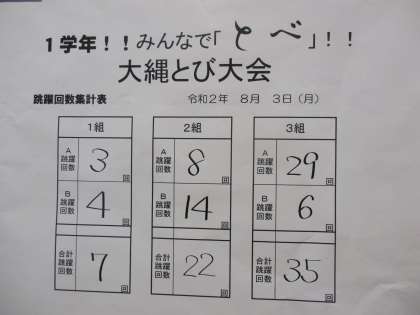 1学年!!みんなで「とべ」!!
大縄とび大会
跳躍回数集計表 令和2年 8月 3日(月)
1組 2組 3組
A跳躍回数 3回 A跳躍回数 8回 A跳躍回数 29回
B跳躍回数 4回 B跳躍回数 14回 B跳躍回数 6回
合計跳躍回数 7回 合計跳躍回数 22回 合計跳躍回数 35回